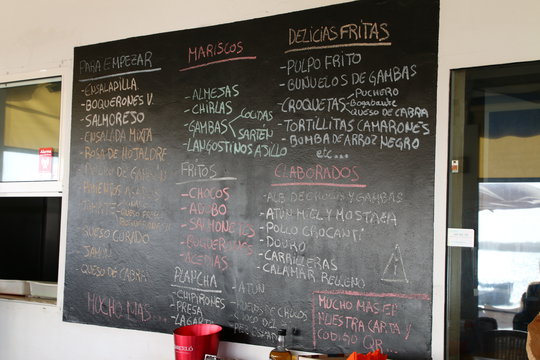 PARA EMPEZAR
- ENSALADILLA
- BOQUERONES V.
- SALMOREJO
- ENSALADA MIXTA
- ROSA DE HOJALDRE
QUESO CURADO
JAMÓN
QUESO DE CABRA
MUCHO MAS...
MARISCOS
- ALMEJAS
- CHIRLAS
- GAMBAS
COCIDAS
SARTEN
- LANGOSTINOS AJILLO
FRITOS
- CHOCOS
- ADOBO
- SALMONETES
- BOQUERONES
- ACEDIAS
PLANCHA
- CHIPIRONES
- PRESA
- LAGARTO
- ATÚN
DELICIAS FRITAS
- PULPO FRITO
- BUÑUELOS DE GAMBAS
- CROQUETAS
PUCHERO
Bogabante
QUESO DE CABRA
- TORTILLITAS CAMARONES
- BOMBA DE ARROZ NEGRO
etc...
ELABORADOS
- ALB DE CHOCOS Y GAMBAS
- ATÚN MIEL Y MOSTAZA
- POLLO CROCANTI
- CARRILLERAS
- CALAMAR RELLENO
MUCHO MAS EN
NUESTRA CARTA Y
CODIGO QR